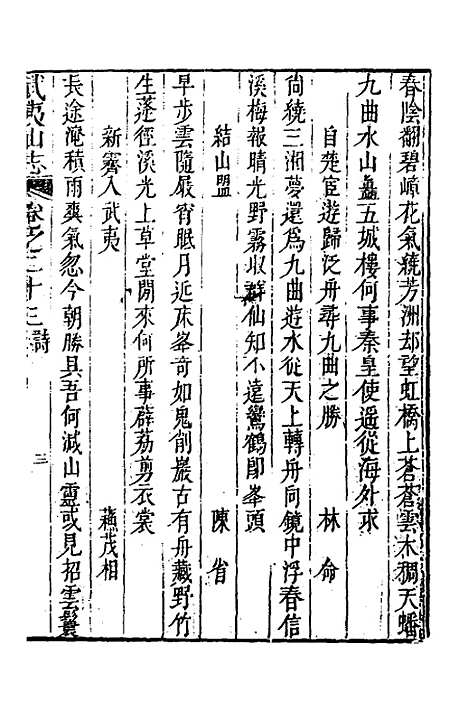 春陰翻碧嶂花氣繞芳洲却望虹橋上蒼蒼雲木稠天蟠
九曲水山矗五城樓何事秦皇使遥從海外求
自楚宦遊歸泛舟尋九曲之勝 林命
尙繞三湘夢還爲九曲遊水從天上轉舟向鏡中浮春信
溪梅報晴光野霧收群仙知不遠鸞鶴卽峯頭
結山盟 陳省
早步雲隨屐宵眠月近床峯奇如鬼削巖古有舟藏野竹
生蓬徑溪光上草堂閒來何所事薜荔剪衣裳
新霽入武夷 蘇茂相
長途淹積雨爽氣忽今朝勝具吾何減山靈或見招雲鬟
武夷山志 卷之二十三 詩 三